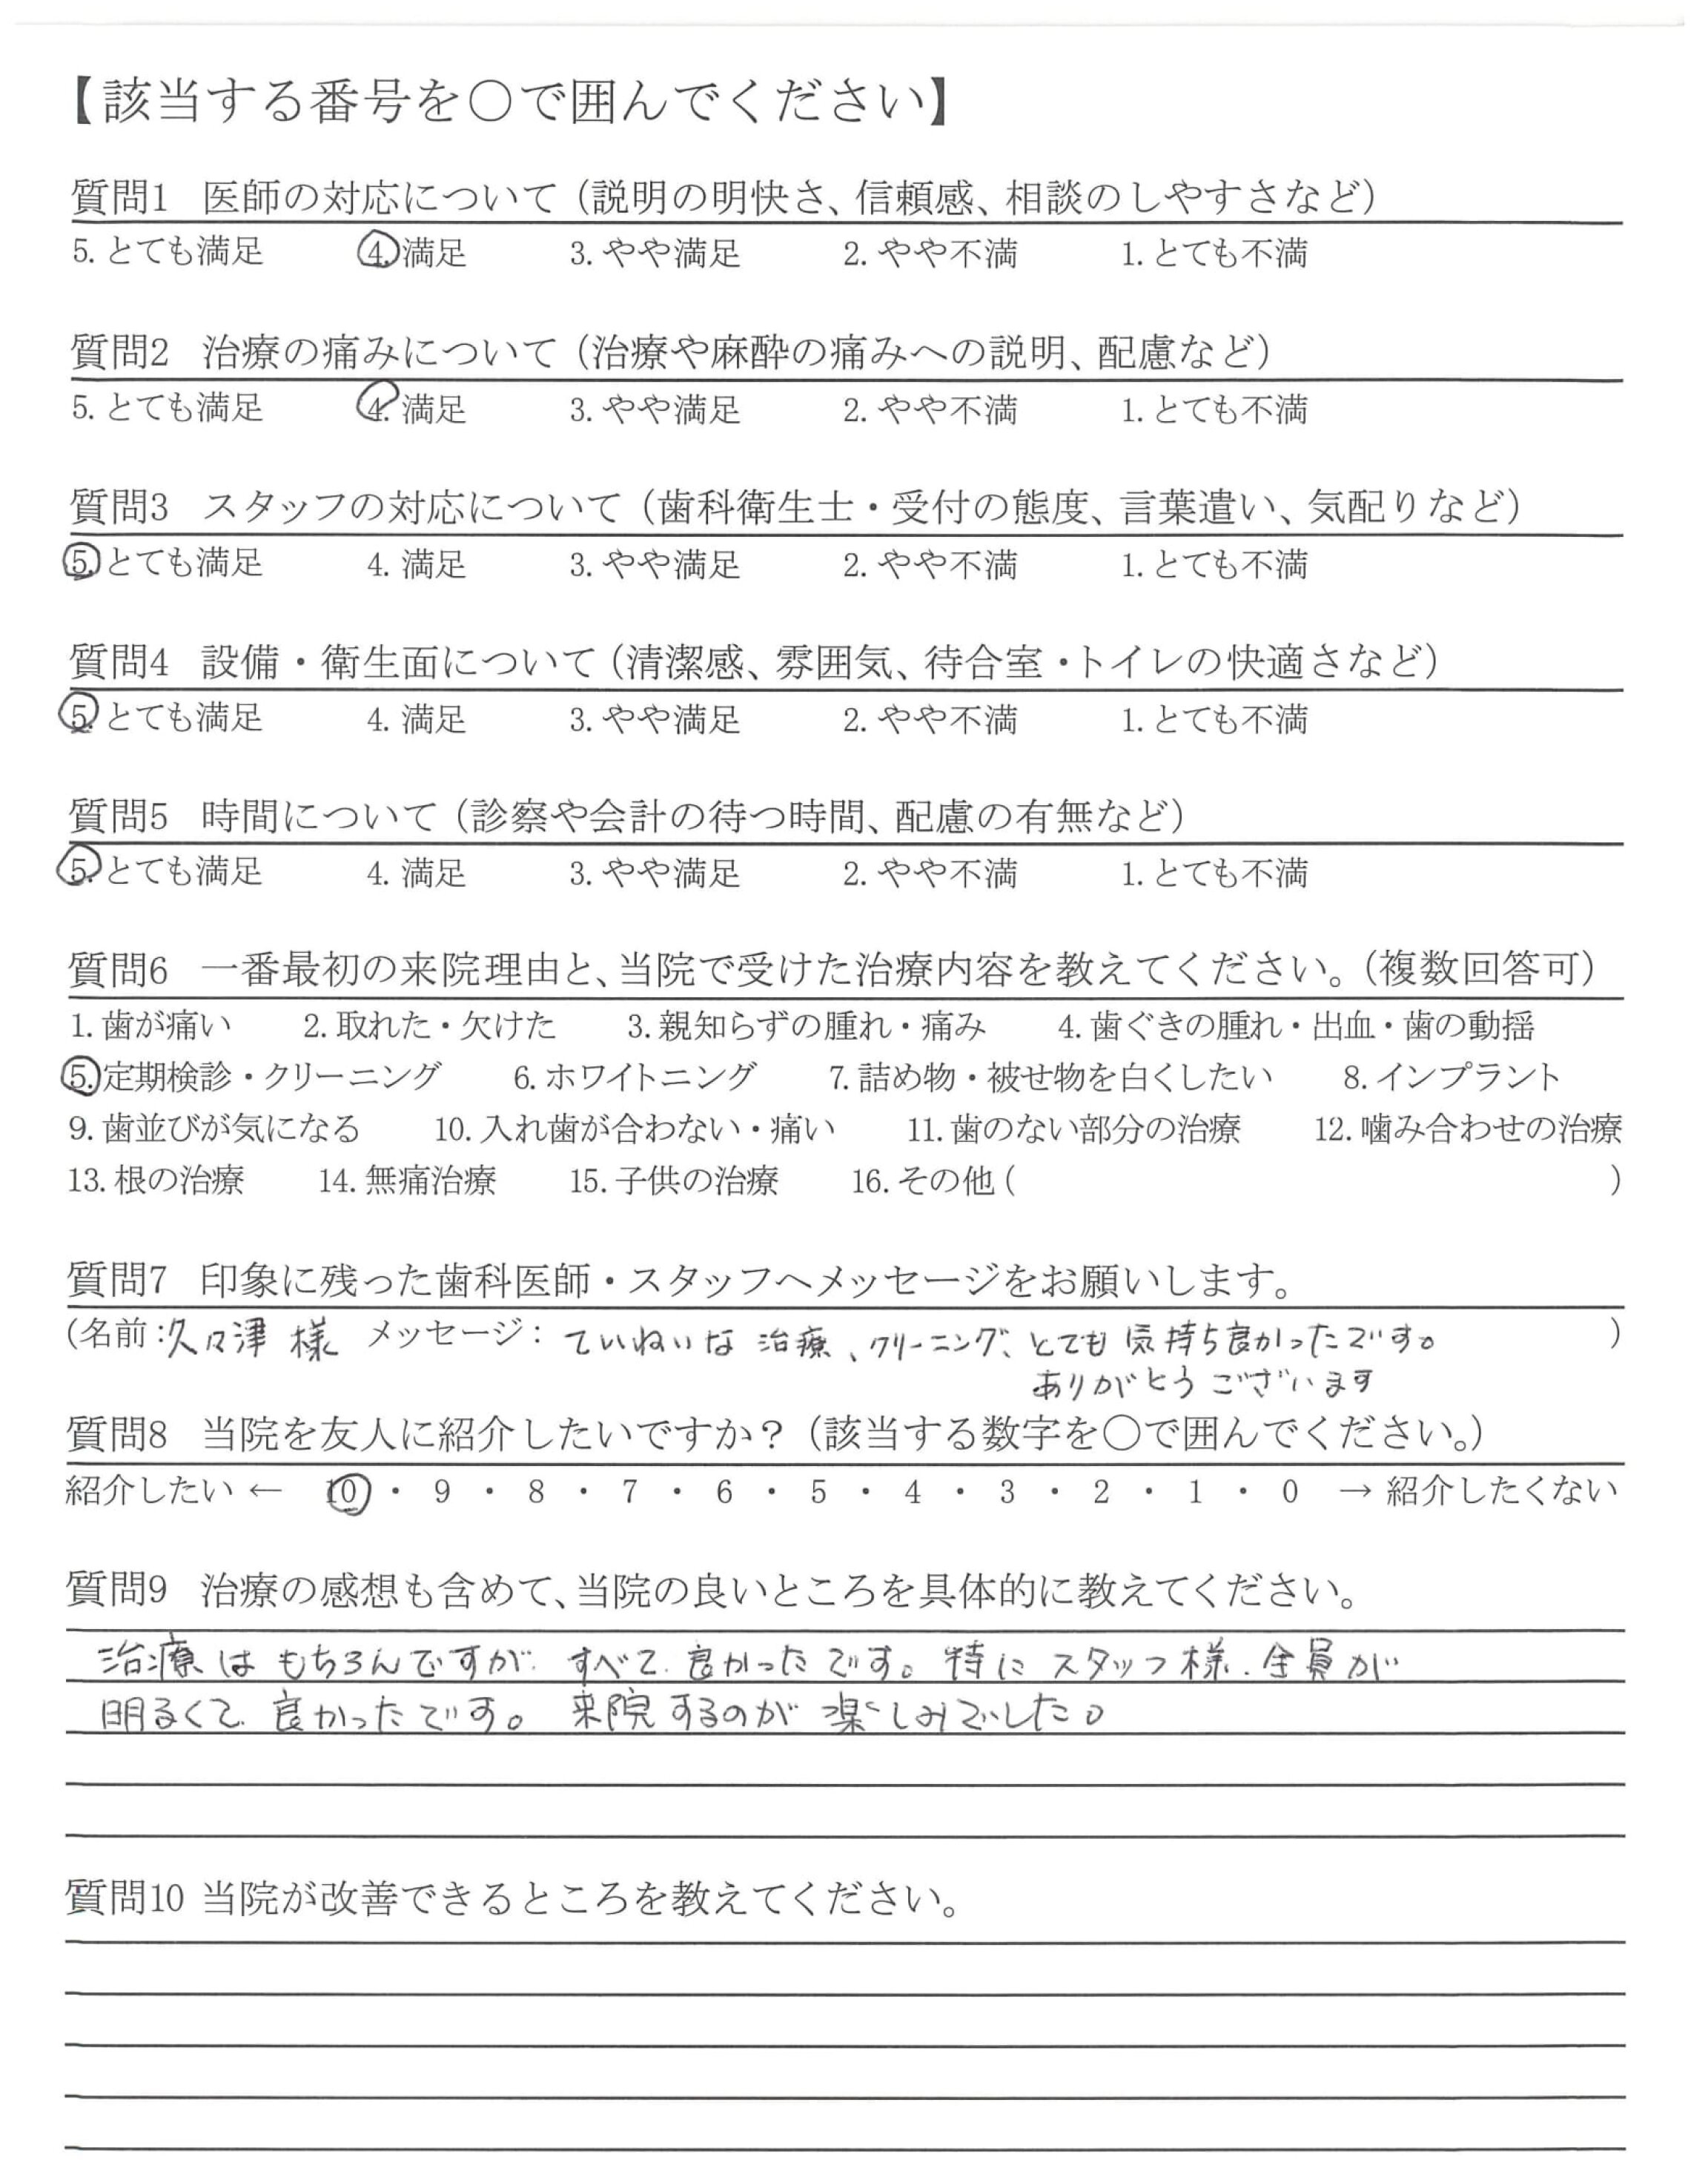 【該当する番号を○で囲んでください】
質問1 医師の対応について（説明の明快さ、信頼感、相談のしやすさなど）
5. とても満足 4. 満足 3. やや満足 2. やや不満 1. とても不満
質問2 治療の痛みについて（治療や麻酔の痛みへの説明、配慮など）
5. とても満足 4. 満足 3. やや満足 2. やや不満 1. とても不満
質問3 スタッフの対応について（歯科衛生士・受付の態度、言葉遣い、気配りなど）
5. とても満足 4. 満足 3. やや満足 2. やや不満 1. とても不満
質問4 設備・衛生面について（清潔感、雰囲気、待合室・トイレの快適さなど）
5. とても満足 4. 満足 3. やや満足 2. やや不満 1. とても不満
質問5 時間について（診察や会計の待つ時間、配慮の有無など）
5. とても満足 4. 満足 3. やや満足 2. やや不満 1. とても不満
質問6 一番最初の来院理由と、当院で受けた治療内容を教えてください。（複数回答可）
1. 歯が痛い 2. 取れた・欠けた 3. 親知らずの腫れ・痛み 4. 歯ぐきの腫れ・出血・歯の動揺
5. 定期検診・クリーニング 6. ホワイトニング 7. 詰め物・被せ物を白くしたい 8. インプラント
9. 歯並びが気になる 10. 入れ歯が合わない・痛い 11. 歯のない部分の治療 12. 噛み合わせの治療
13. 根の治療 14. 無痛治療 15. 子供の治療 16. その他 ( )
質問7 印象に残った歯科医師・スタッフへメッセージをお願いします。
（名前：久々津 様 メッセージ： ていねいな 治療、クリーニング、とても 気持ち良かったです。）
ありがとうございます
質問8 当院を友人に紹介したいですか？（該当する数字を○で囲んでください。）
紹介したい ← 10 ・ 9 ・ 8 ・ 7 ・ 6 ・ 5 ・ 4 ・ 3 ・ 2 ・ 1 ・ 0 → 紹介したくない
質問9 治療の感想も含めて、当院の良いところを具体的に教えてください。
治療は もちろんですが、すべて、良かったです。特に スタッフ様、全員が
明るくて、良かったです。来院するのが 楽しみでした。
質問10 当院が改善できるところを教えてください。